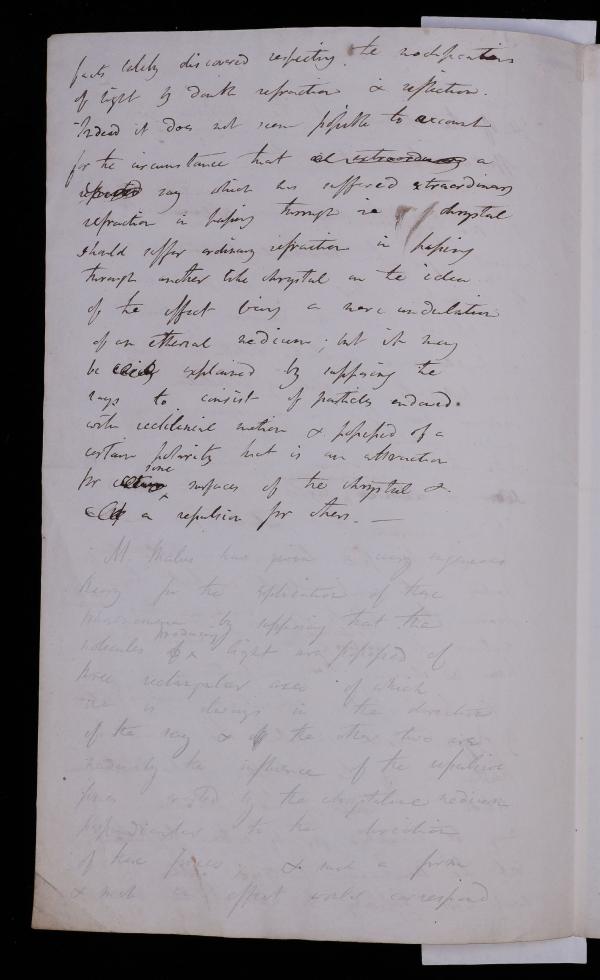 facts lately discovered respecting the modifications
of light by double refraction & reflection.
Indeed it does not seem possible to account
for the circumstance that extraordinary a
ray which has suffered extraordinary
refraction in passing through one chrystal
should suffer ordinary refraction in passing
through another like chrystal on the idea
of the effect being a mere undulation
of an etherial medium; but it may
be easily explained by supposing the
rays to consist of particles endued
with rectilinial motion & possessed of a
certain polarity that is an attraction
for some surfaces of the chrystal &
a repulsion for others. —
M. Malus has given a very ingenious
theory for the explication of these
phaenomena by supposing that the
molecules producing light are possessed of
three rectangular axes of which
one is always in the direction
of the ray & the other two are
under the influence of the repulsive
forces exerted by the chrystaline medium
perpendicular to the direction
of these forces & such a form
& such an effect would correspond